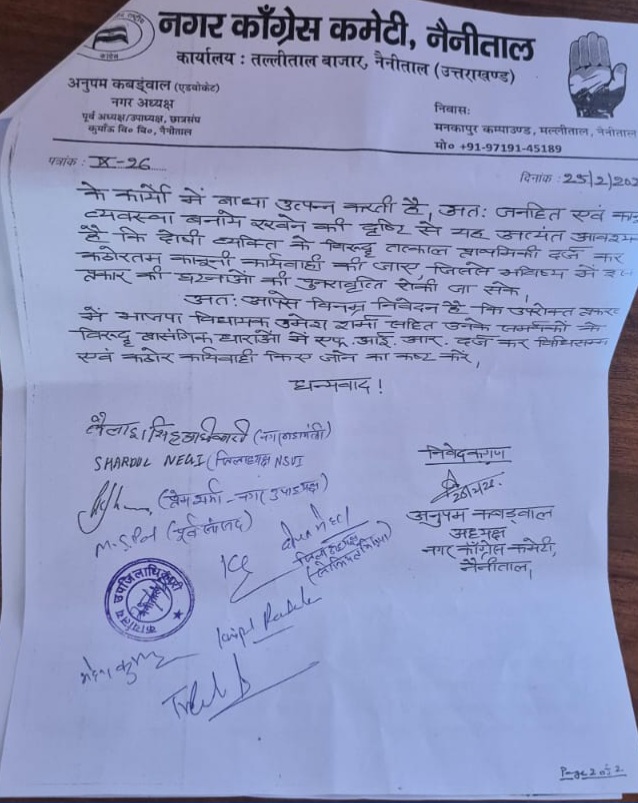 नगर काँग्रेस कमेटी, नैनीताल
कार्यालय : तल्लीताल बाजार, नैनीताल (उत्तराखण्ड)
अनुपम कबड्वाल (एडवोकेट)
नगर अध्यक्ष
पूर्व अध्यक्ष/उपाध्यक्ष, छात्रसंघ
कुमाँऊ वि० वि०, नैनीताल
निवासः
मनकापुर कम्पाउण्ड, मल्लीताल, नैनीताल
मो० +91-97191-45189
पत्रांक : IX-26
दिनांक : 25/2/202
के कार्यों में बाधा उत्पन्न करती है, अतः जनहित एवं
व्यवस्था बनाये रखने की दृष्टि से यह अत्यंत आवश्यक
है कि दोषी व्यक्ति के विरुद्ध तत्काल प्राथमिकी दर्ज कर
कठोरतम कानूनी कार्यवाही की जाए जिससे भविष्य में इस
प्रकार की घटनाओं की पुनरावृत्ति रोकी जा सके,
अतः आपसे विनम्र निवेदन है कि उपरोक्त प्रकरण
में भाजपा विधायक उमेश शर्मा सहित उनके समर्थकों के
विरुद्ध प्रासंगिक धाराओं में एफ. आई. आर. दर्ज कर विधिसम्मत
एवं कठोर कार्यवाही किए जाने का कष्ट करें,
धन्यवाद !
कैलाश सिंह अधिकारी
SHARDUL NEGI (जिलाध्यक्ष NSUI
(प्रेम शर्मा - नगर उपाध्यक्ष)
(पूर्व सांसद)
निवेदकगण
अनुपम कबड्वाल
अध्यक्ष
नगर काँग्रेस कमेटी,
नैनीताल,
कार्यालय उपजिलाधिकारी
नैनीताल
Page 2 of 2